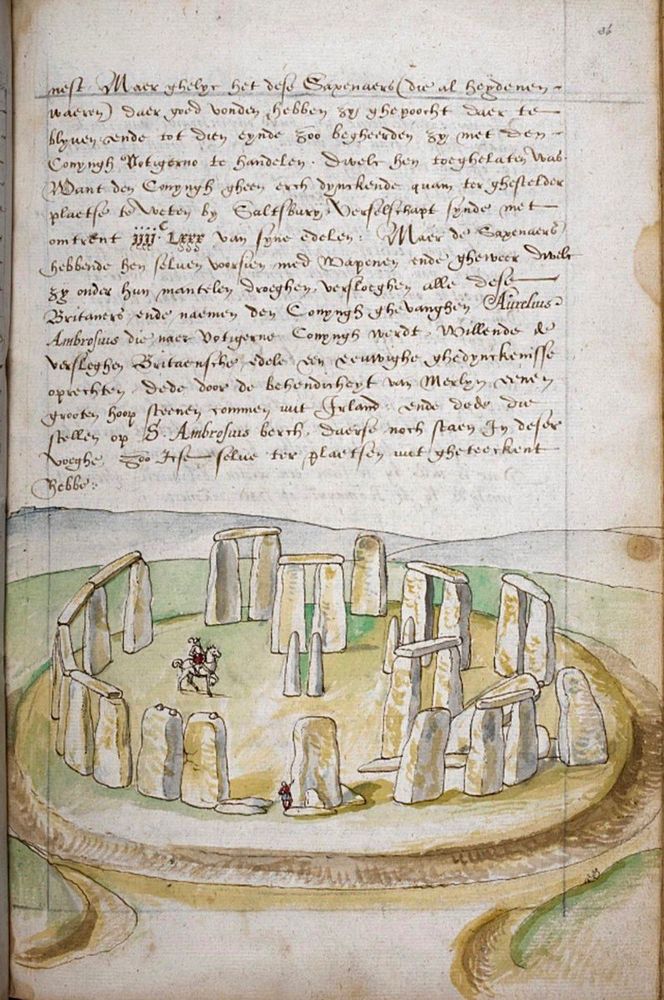 36
nest. Maer ghelyc het dese Saxenaers (die al heydenen-
waeren) daer goed vonden hebben zy ghepoocht daer te
blyven, ende tot dien eynde zoo begheerden zy met den-
Conyngh Votigerno te handelen. dwelc hen toeghelaten was.
Want den Conyngh gheen erch dynckende quam ter ghestelder
plaetse te weten by Saltsbury, verselschapt synde met
omtrent iiiic. Lxxx van syne edelen: Maer de Saxenaers
hebbende hen selven voorsien med wapenen ende gheweer dwelc
zy onder hun mantelen droeghen, versloeghen alle dese
Britaners, ende naemen den Conyngh ghevanghen. Aurelius
Ambrosius die naer Votigerne Conyngh werdt, Willende de
versleghen Britaensche edele een eeuwighe ghedynckenisse
oprechten, dede door de behendicheyt van Merlyn eenen
grooten hoop steenen commen uut Irland, ende dede die
stellen op S. Ambrosius berch, daerse noch staen in deser
voeghe, zoo Icse selve ter plaetsen uut gheteeckent
hebbe: